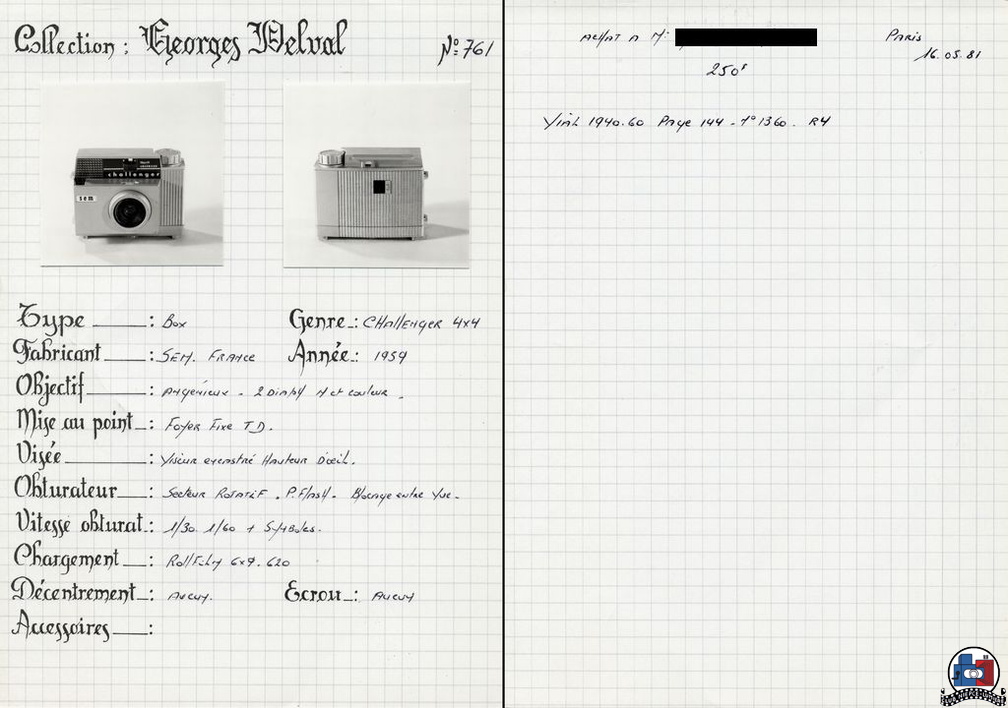 Collection : Georges Delval
N° 761
sem
challenger
Type : Box
Genre : CHALLENGER 4x4
Fabricant : SEM. FRANCE
Année : 1959
Objectif : Angénieux - 2 Diaph N et couleur .
Mise au point : Foyer Fixe T D.
Visée : Viseur encastré Hauteur D'œil.
Obturateur : Secteur Rotatif . P. Flash - Blocage entre Vue -
Vitesse obturat. : 1/30 1/60 + Symboles.
Chargement : Roll Film 6x9. 620
Décentrement : Aucun.
Ecrou : Aucun
Accessoires :
ACHAT A Mr
PARIS
16.05.81
250F
Vial 1940.60 Page 144 - N° 1360 . R4